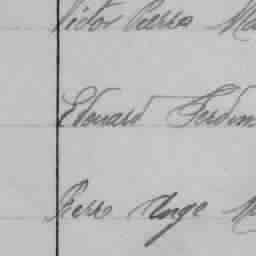 Victor Pierre Ma
Edouard Ferdin
Pierre Ange Ma